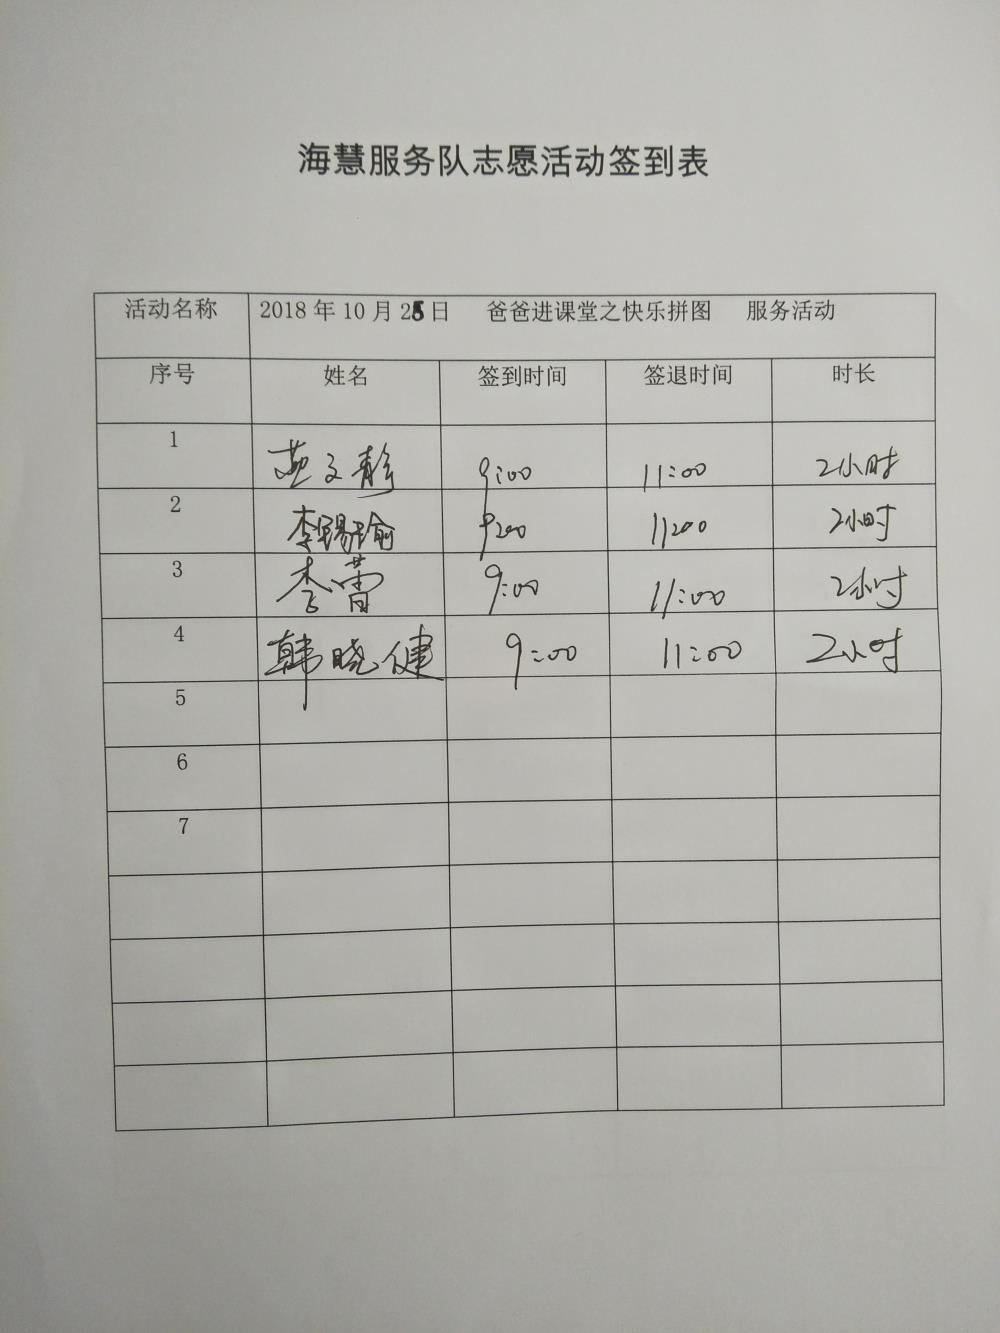 海慧服务队志愿活动签到表
活动名称 2018 年 10 月 25 日 爸爸进课堂之快乐拼图 服务活动
序号 姓名 签到时间 签退时间 时长
1 燕文静 9:00 11:00 2小时
2 李锡瑜 9:00 11:00 2小时
3 李蕾 9:00 11:00 2小时
4 韩晓健 9:00 11:00 2小时
5
6
7